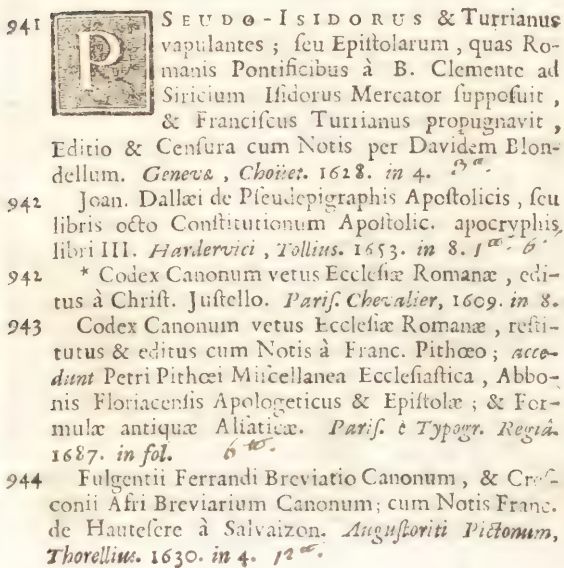 941 PSEUDO-ISIDORUS & Turrianus
vapulantes ; ſeu Epiſtolarum , quas Ro-
manis Pontificibus à B. Clemente ad
Siricium Iſidorus Mercator ſuppoſuit ,
& Franciſcus Turrianus propugnavit ,
Editio & Cenſura cum Notis per Davidem Blon-
dellum. Genevæ , Choüet. 1628. in 4.
942 Joan. Dallæi de Pſeudepigraphis Apoſtolicis , ſeu
libris octo Conſtitutionum Apoſtolic. apocryphis,
libri III. Hardervici , Tollius. 1653. in 8.
942 * Codex Canonum vetus Eccleſiæ Romanæ , edi-
tus à Chriſt. Juſtello. Pariſ. Chevalier, 1609. in 8.
943 Codex Canonum vetus Eccleſiæ Romanæ , reſti-
tutus & editus cum Notis à Franc. Pithœo ; acce-
dunt Petri Pithœi Miſcellanea Eccleſiaſtica , Abbo-
nis Floriacenſis Apologeticus & Epiſtolæ ; & For-
mulæ antiquæ Alſaticæ. Pariſ. è Typogr. Regiâ.
1687. in fol.
944 Fulgentii Ferrandi Breviatio Canonum , & Creſ-
conii Afri Breviarium Canonum ; cum Notis Franc.
de Hauteſere à Salvaizon. Auguſtoriti Pictonum,
Thorellius. 1630. in 4.